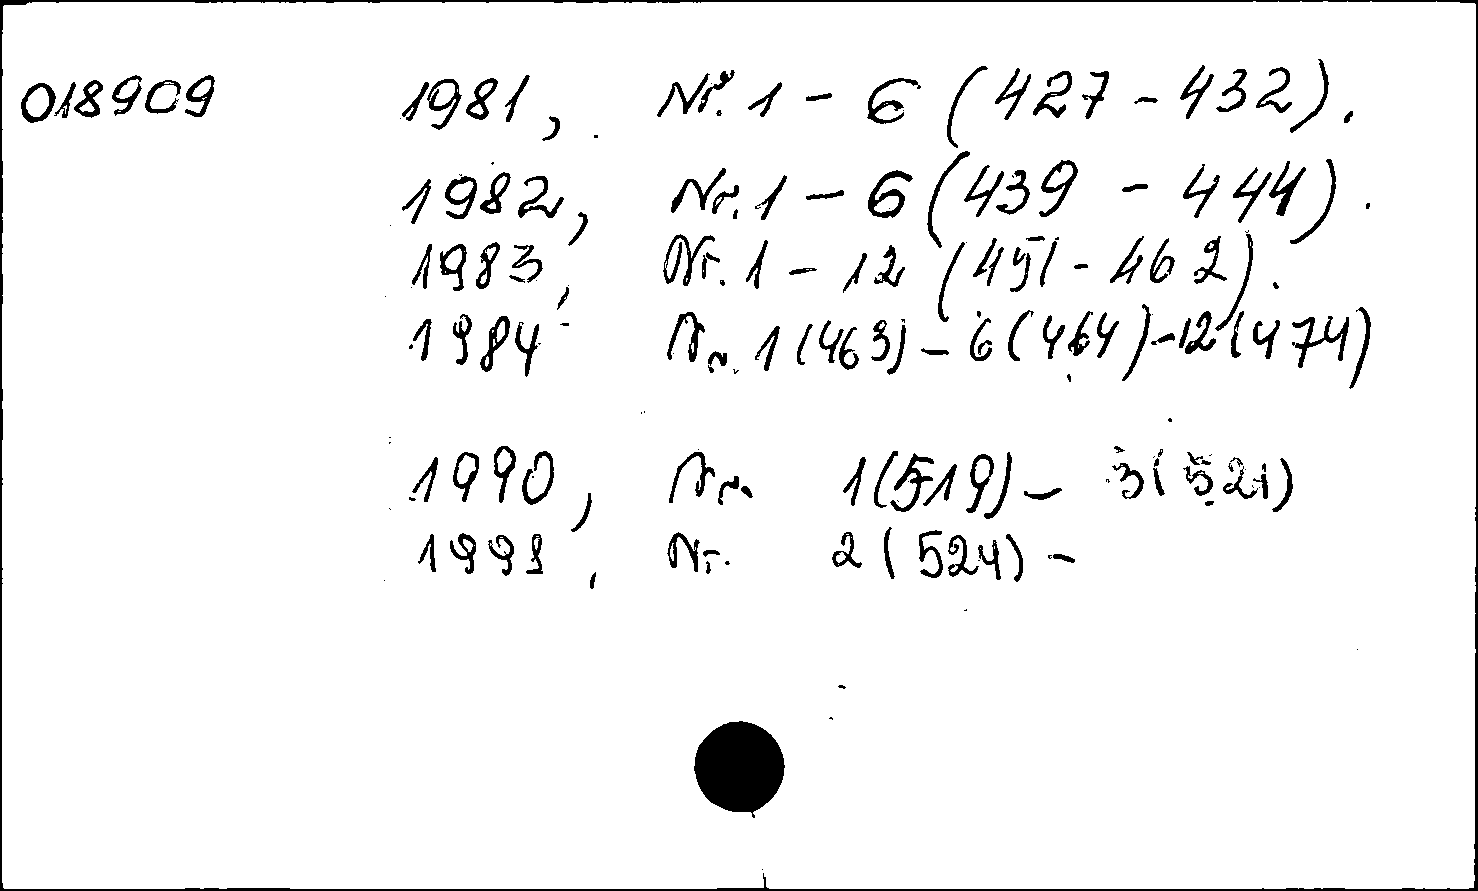 018909 1981, Nr. 1 - 6 (427 - 432).
1982, Nr. 1 - 6 (439 - 444).
1983, Nr. 1 - 12 (451 - 462).
1984 Nr. 1 (463) - 6 (464) - 12 (474)
1990, Nr. 1 (519) - 3 (521)
1991, Nr. 2 (524) -